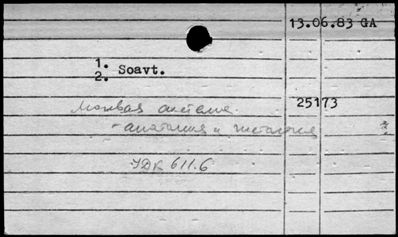 13.06.83 GA
1.
2. Soavt.
25173
- анатомия и гистология
УДК 611.6